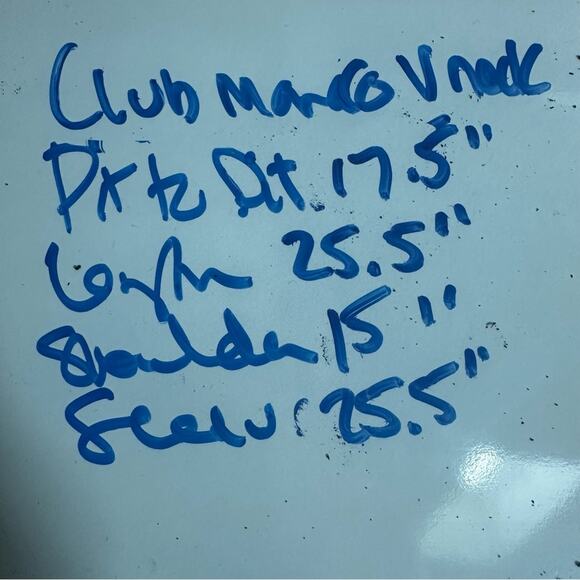 Club Monaco V neck
Pit to Pit 17.5"
Length 25.5"
Shoulder 15"
Sleeve 25.5"